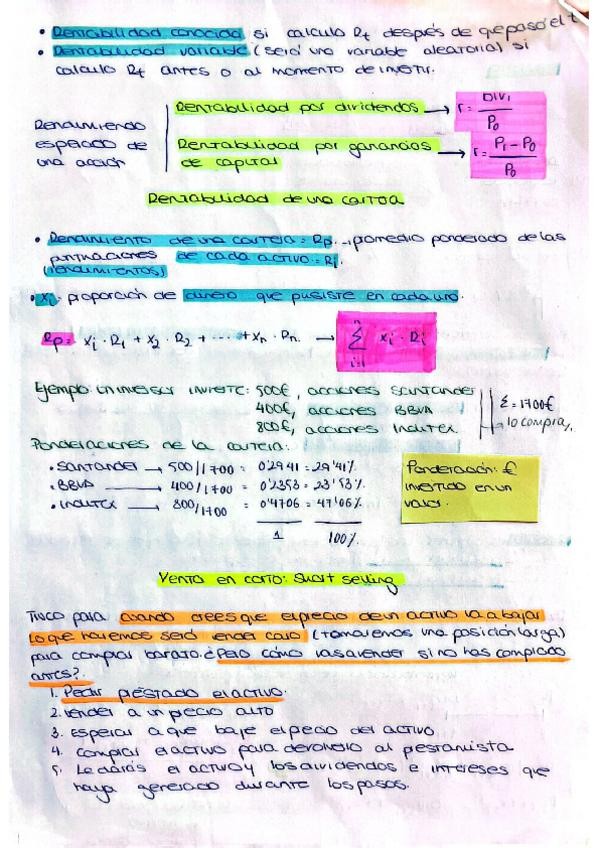 • Rentabilidad conocida si calculo Rt después de que pasó el t
• Rentabilidad variable (será una variable aleatoria) si
calculo Rt antes o al momento de invertir.
Rentabilidad por dividendos → r = Div1 / P0
Rendimiendo esperado de una acción
Rentabilidad por ganancias de capital → r = P1 - P0 / P0
Rentabilidad de una cartera
• Rendimiento de una cartera = Rp → promedio ponderado de las
puntuaciones de cada activo = Ri.
(rendimientos)
• xi. proporción de dinero que pusiste en cada uno.
Rp = xi · R1 + x2 · R2 + ···· + xn · Rn. → n Σ i=1 xi · Ri
Ejemplo: un inversor invierte: 500€, acciones Santander
400€, acciones BBVA
800€, acciones Inditex
Σ = 1700€
→ 10 compra/.
Ponderaciones de la cartera:
• Santander → 500/1700 = 0'2941 = 29'41%
• BBVA → 400/1700 = 0'2353 = 23'53%
• Inditex → 800/1700 = 0'4706 = 47'06%
1 100%
Ponderación: €
invertido en un
valor.
Venta en corto: Short selling
Truco para cuando crees que el precio de un activo va a bajar
Lo que haremos será vender caro (tomaremos una posición larga)
para comprar barato ¿Pero cómo vas a vender si no has comprado
antes?
1. Pedir prestado el activo.
2. Vender a un precio alto
3. Esperar a que baje el precio del activo
4. Comprar el activo para devolverlo al prestamista
5. Le darás el activo y los dividendos e intereses que
haya generado durante los pasos.